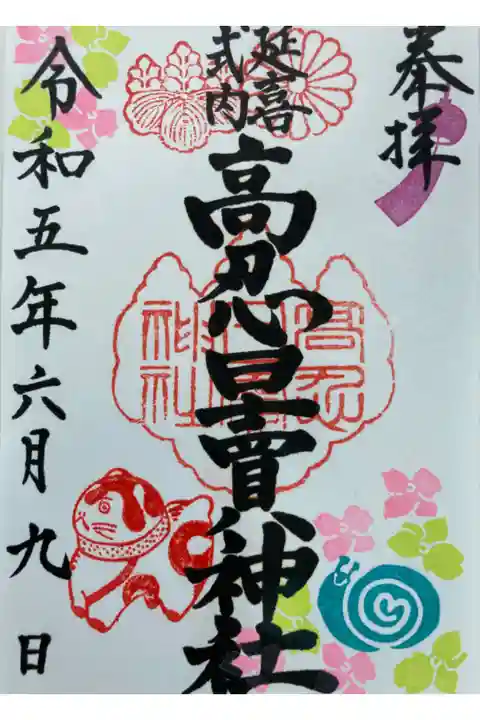 奉拝
延喜
式内
高忍日賣神社
令和五年六月九日
高忍
神社